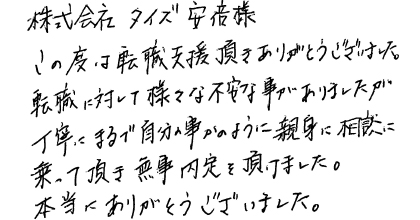 株式会社 タイズ 安倍様
この度は転職支援頂きありがとうございました。
転職に対して様々な不安な事がありましたが
丁寧にまるで自分の事かのように親身に相談に
乗って頂き無事内定を頂けました。
本当にありがとうございました。